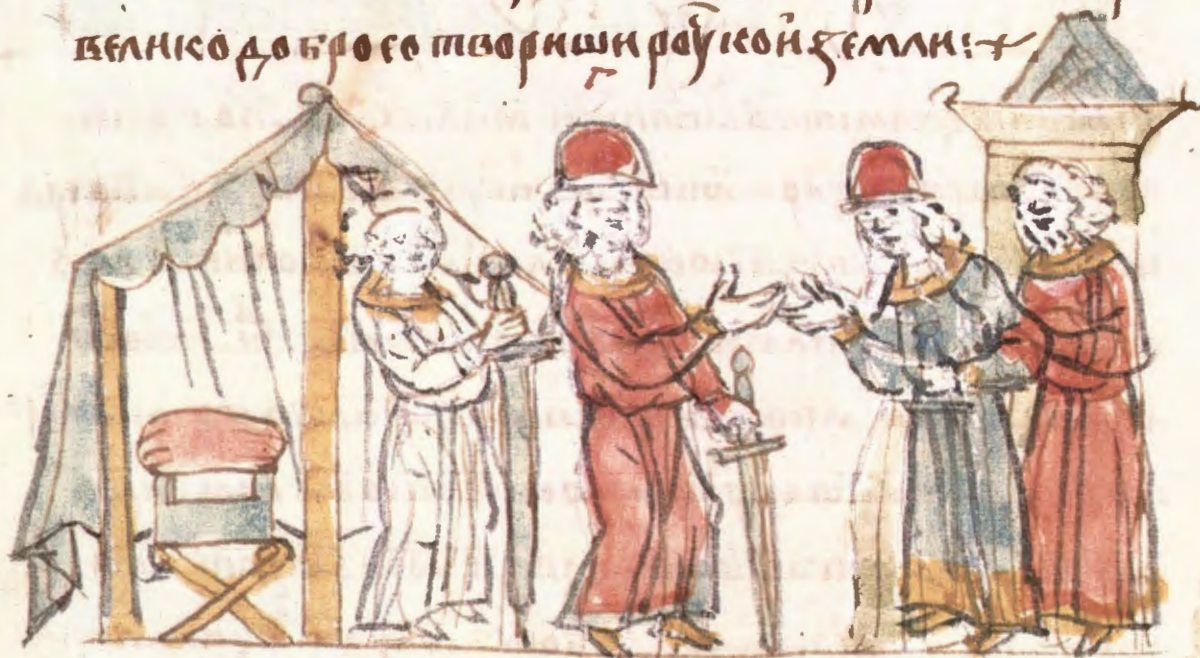 велико добро сотвориши роускои земли:+